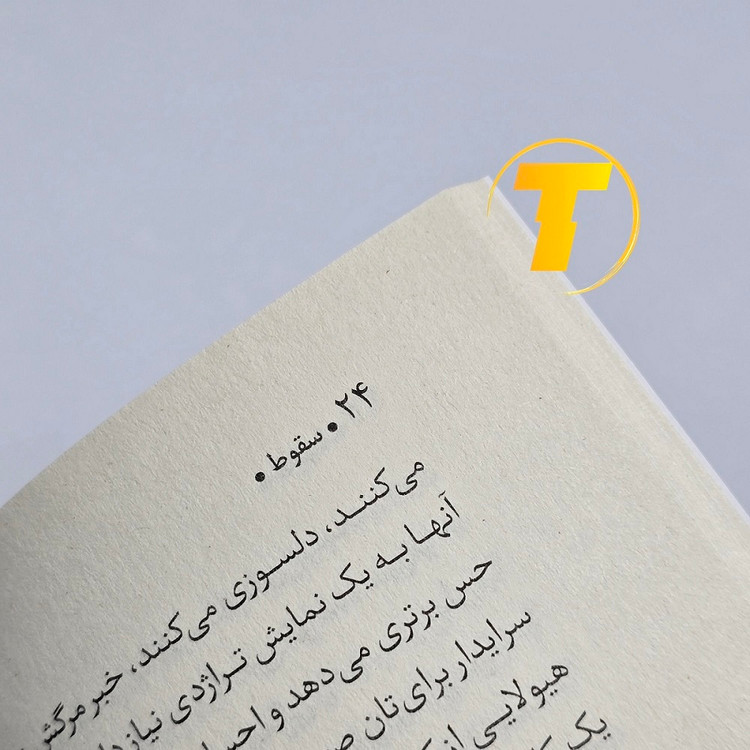 T
۲۴ • سقوط •
می‌کننـد، دلسـوزی می‌کنند، خبر مرگش
آنهـا بـه یک نمایش تراژدی
حس برتری می‌دهد و
سرایدار برای‌تان
هیولایـی
یک